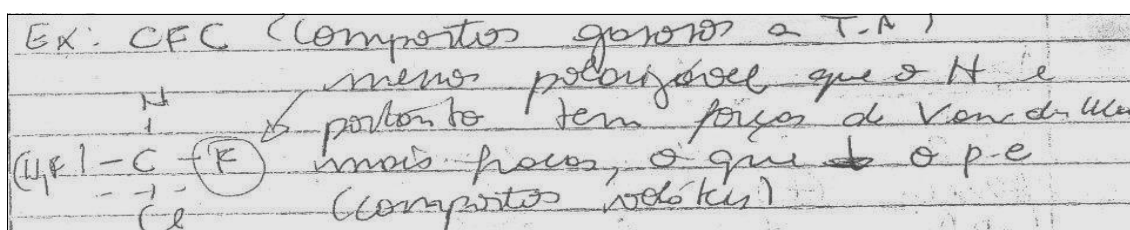 Ex: CFC (Compostos gasosos a T.A)
menos polarizável que o H e
H
portanto tem forças de Van der Waa
(H,F) - C - F mais fracas, o que ↓ o p.e
Cl (compostos voláteis)